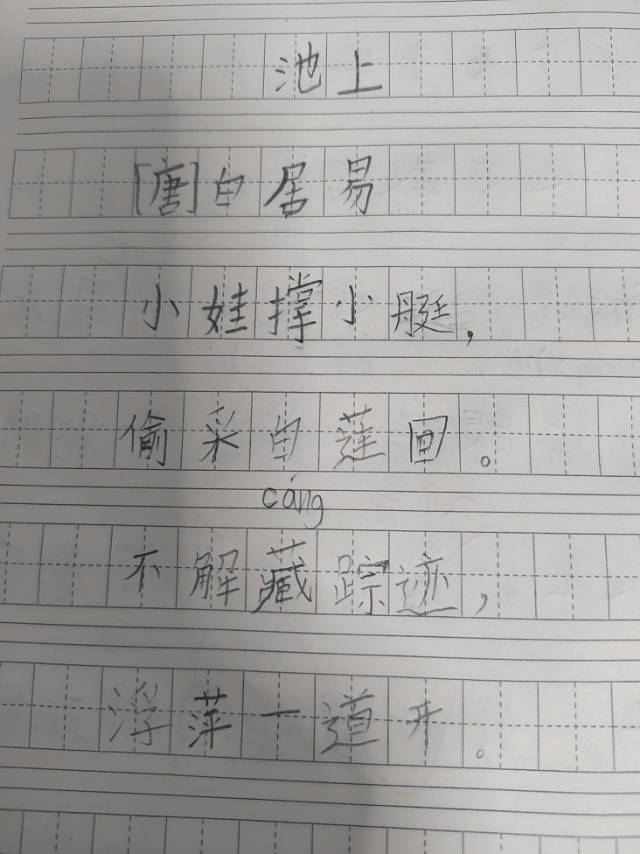 池上
[唐]白居易
小娃撑小艇，
偷采白莲回。
cáng
不解藏踪迹，
浮萍一道开。